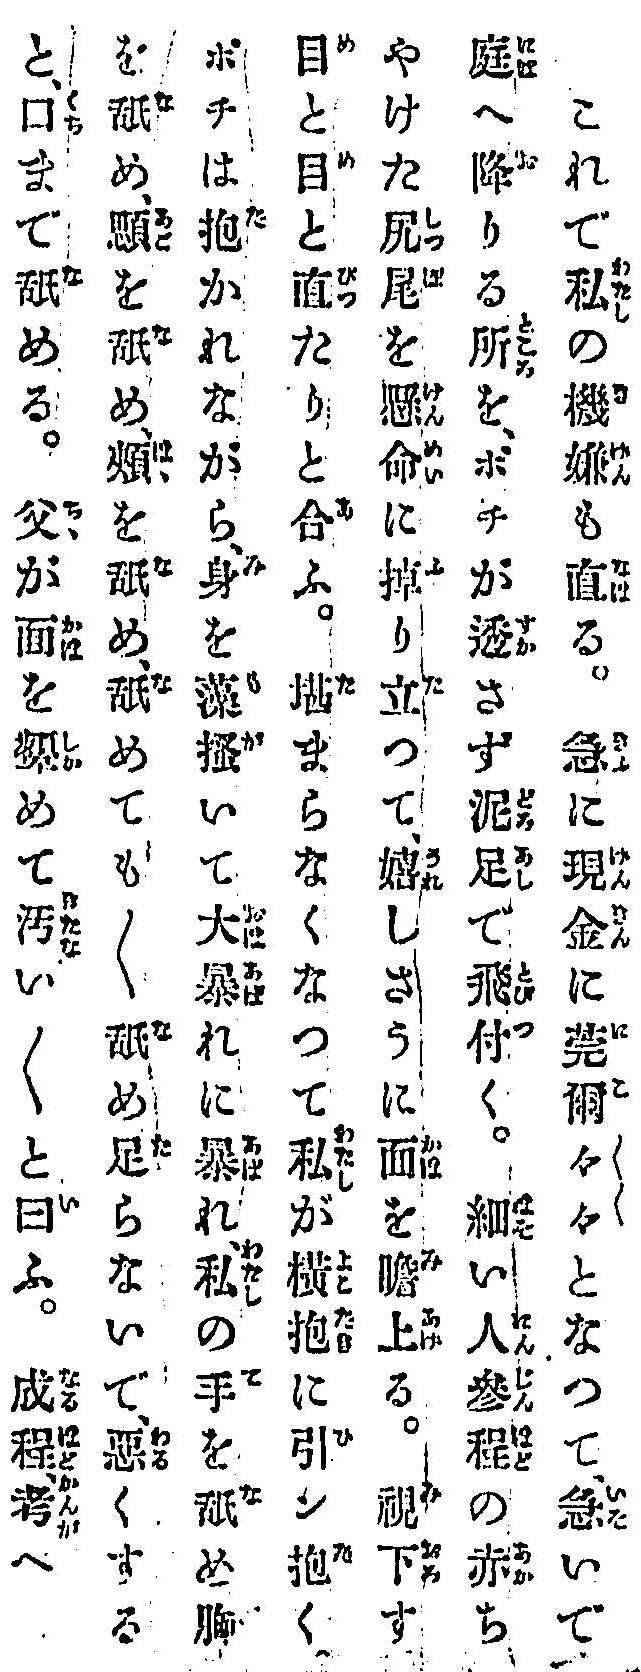 これで私の機嫌も直る。急に現金に莞爾々々となつて、急いで
庭へ降りる所を、ポチが透さず泥足で飛付く。細い人參程の赤ち
やけた尻尾を懸命に掉り立つて、嬉しさうに面を瞻上る。視下す
目と目と直たりと合ふ。堪まらなくなつて私が横抱に引ン抱く。
ポチは抱かれながら、身を藻掻いて大暴れに暴れ、私の手を舐め胸
を舐め、顋を舐め、頬を舐め、舐めても〱舐め足らないで、惡くする
と、口まで舐める。父が面を顰めて汚い〱と曰ふ。成程、考へ